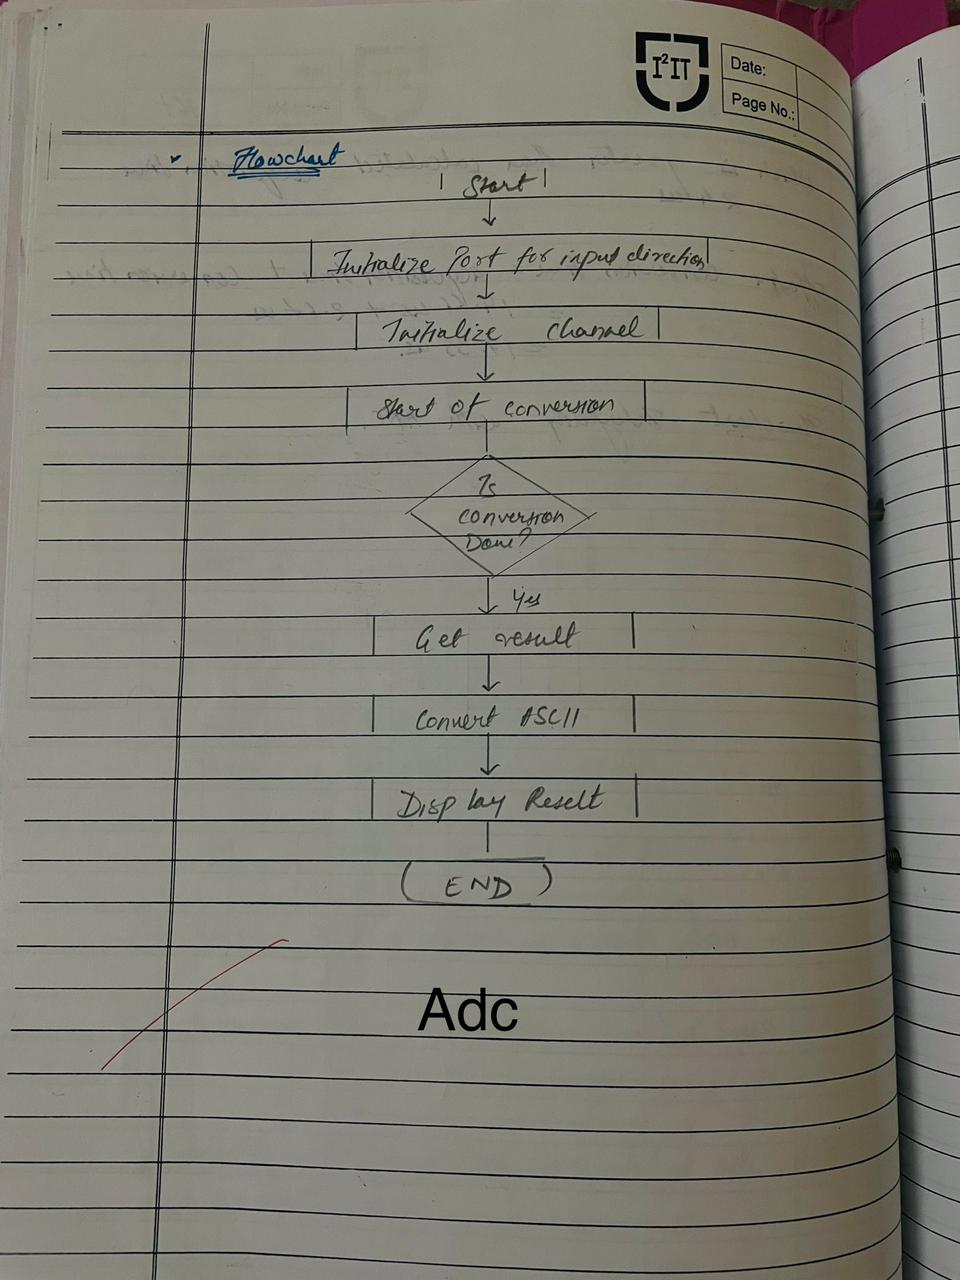 I²IT
Date:
Page No.:
Flowchart
Start
Initialize Port for input direction
Initialize channel
Start of conversion
Is
conversion
Done?
Yes
Get result
Convert ASCII
Display Reselt
END
Adc